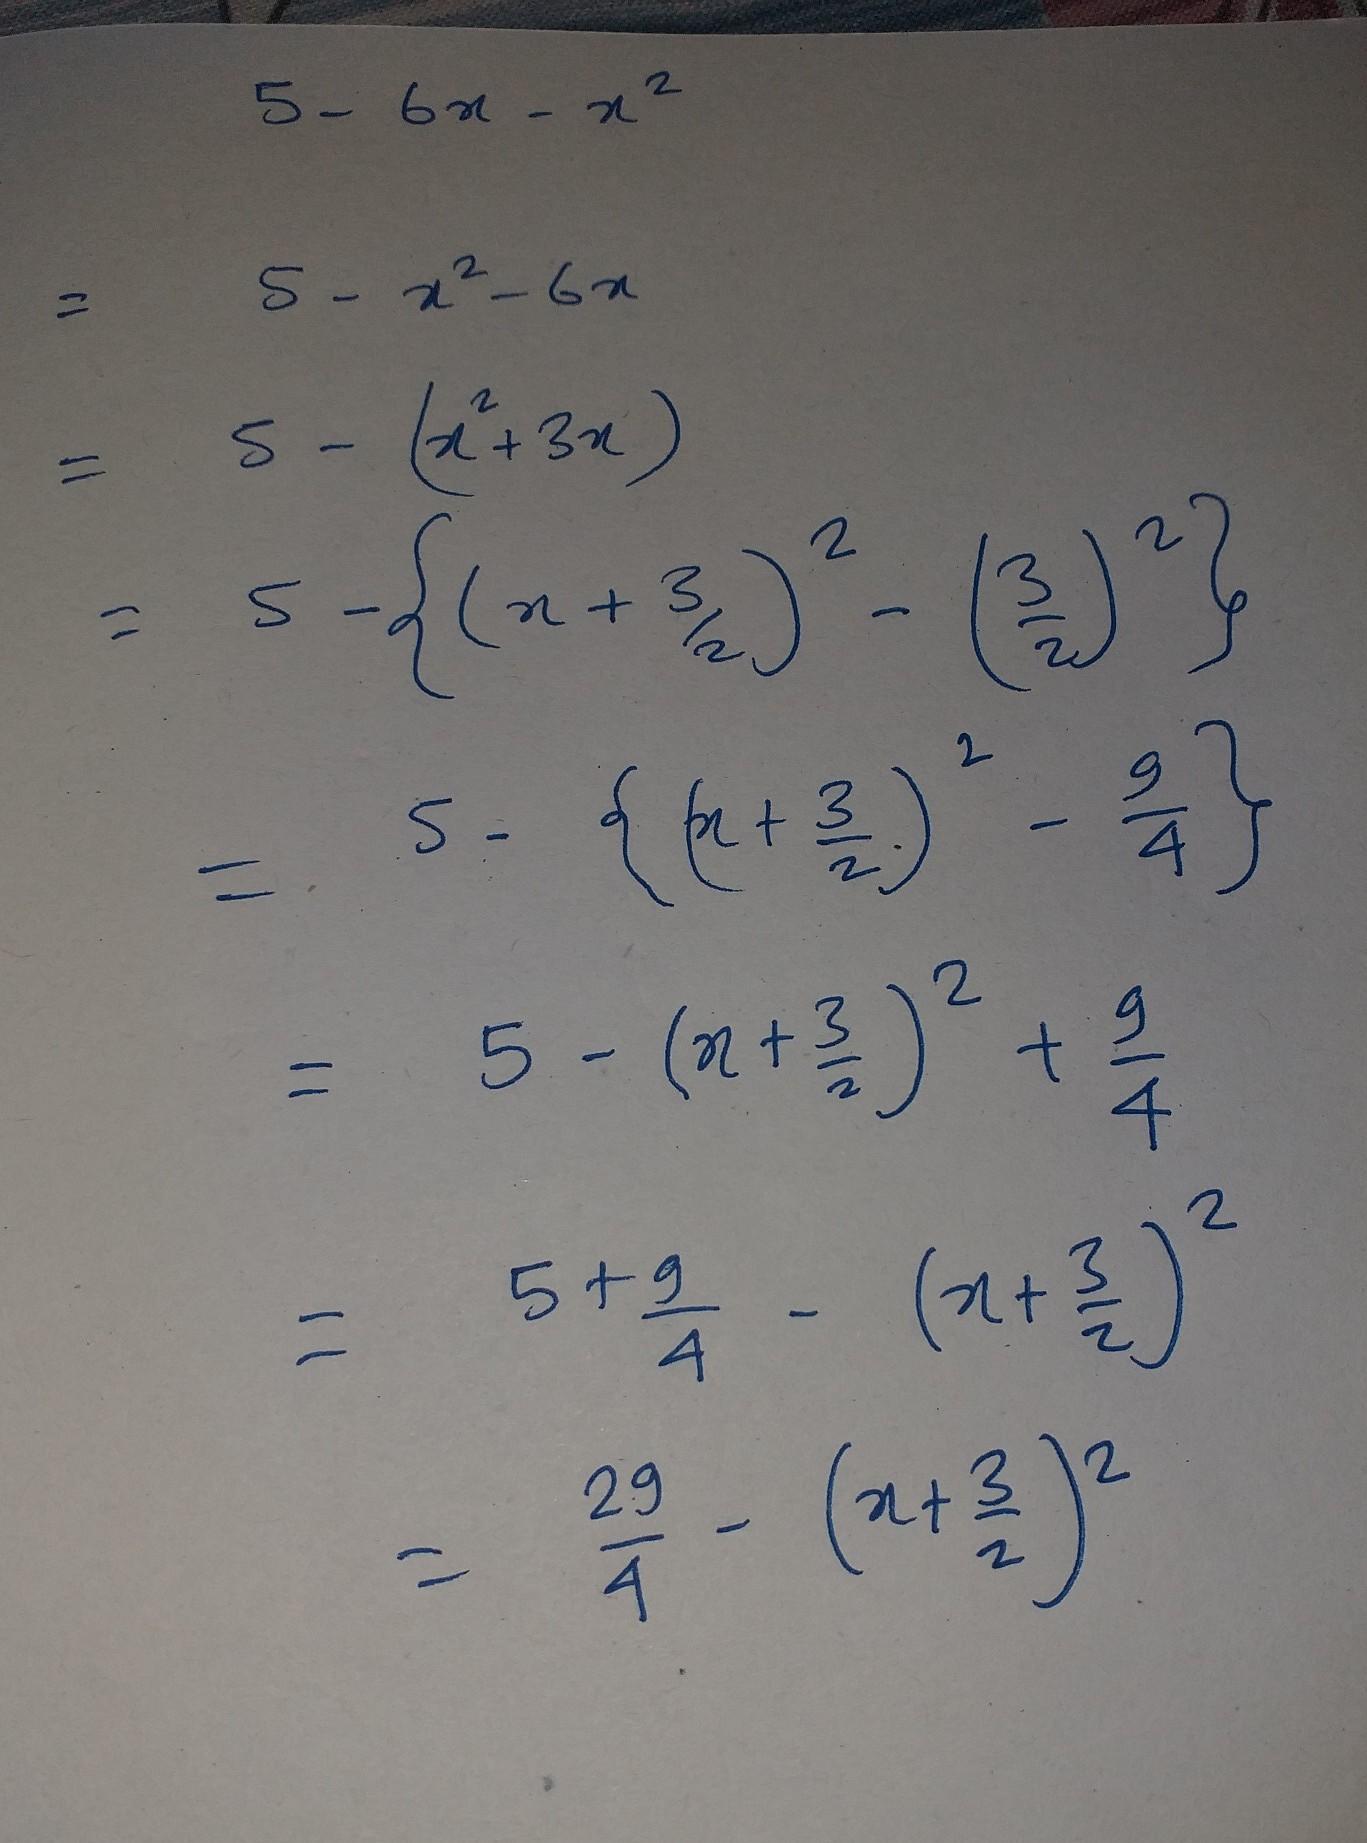 5 - 6x - x²
= 5 - x² - 6x
= 5 - (x² + 3x)
= 5 - {(x + 3/2)² - (3/2)²}
= 5 - {(x + 3/2)² - 9/4}
= 5 - (x + 3/2)² + 9/4
= 5 + 9/4 - (x + 3/2)²
= 29/4 - (x + 3/2)²